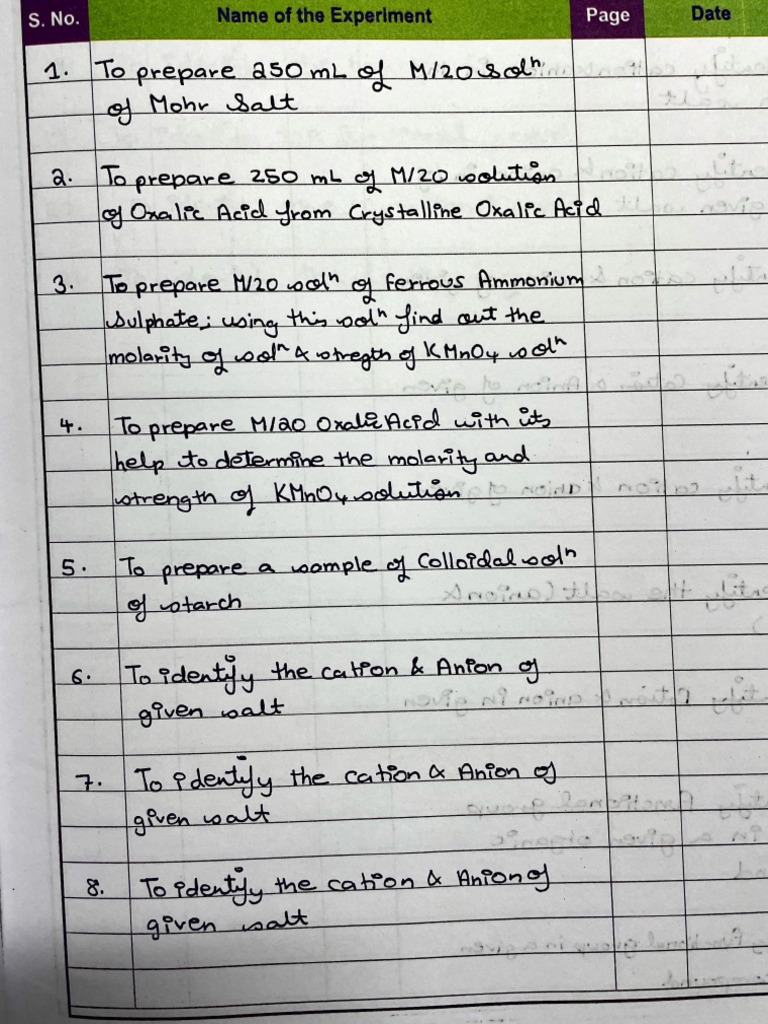 S. No. Name of the Experiment Page Date
1. To prepare 250 mL of M/20 Solⁿ
of Mohr Salt
2. To prepare 250 mL of M/20 solution
of Oxalic Acid from Crystalline Oxalic Acid
3. To prepare M/20 solⁿ of Ferrous Ammonium
Sulphate; using this solⁿ find out the
molarity of solⁿ & stregth of KMnO4 solⁿ
4. To prepare M/20 Oxalic Acid with its
help to determine the molarity and
strength of KMnO4 solution
5. To prepare a sample of Colloidal solⁿ
of starch
6. To identify the cation & Anion of
given salt
7. To identify the cation & Anion of
given salt
8. To identify the cation & Anion of
given salt